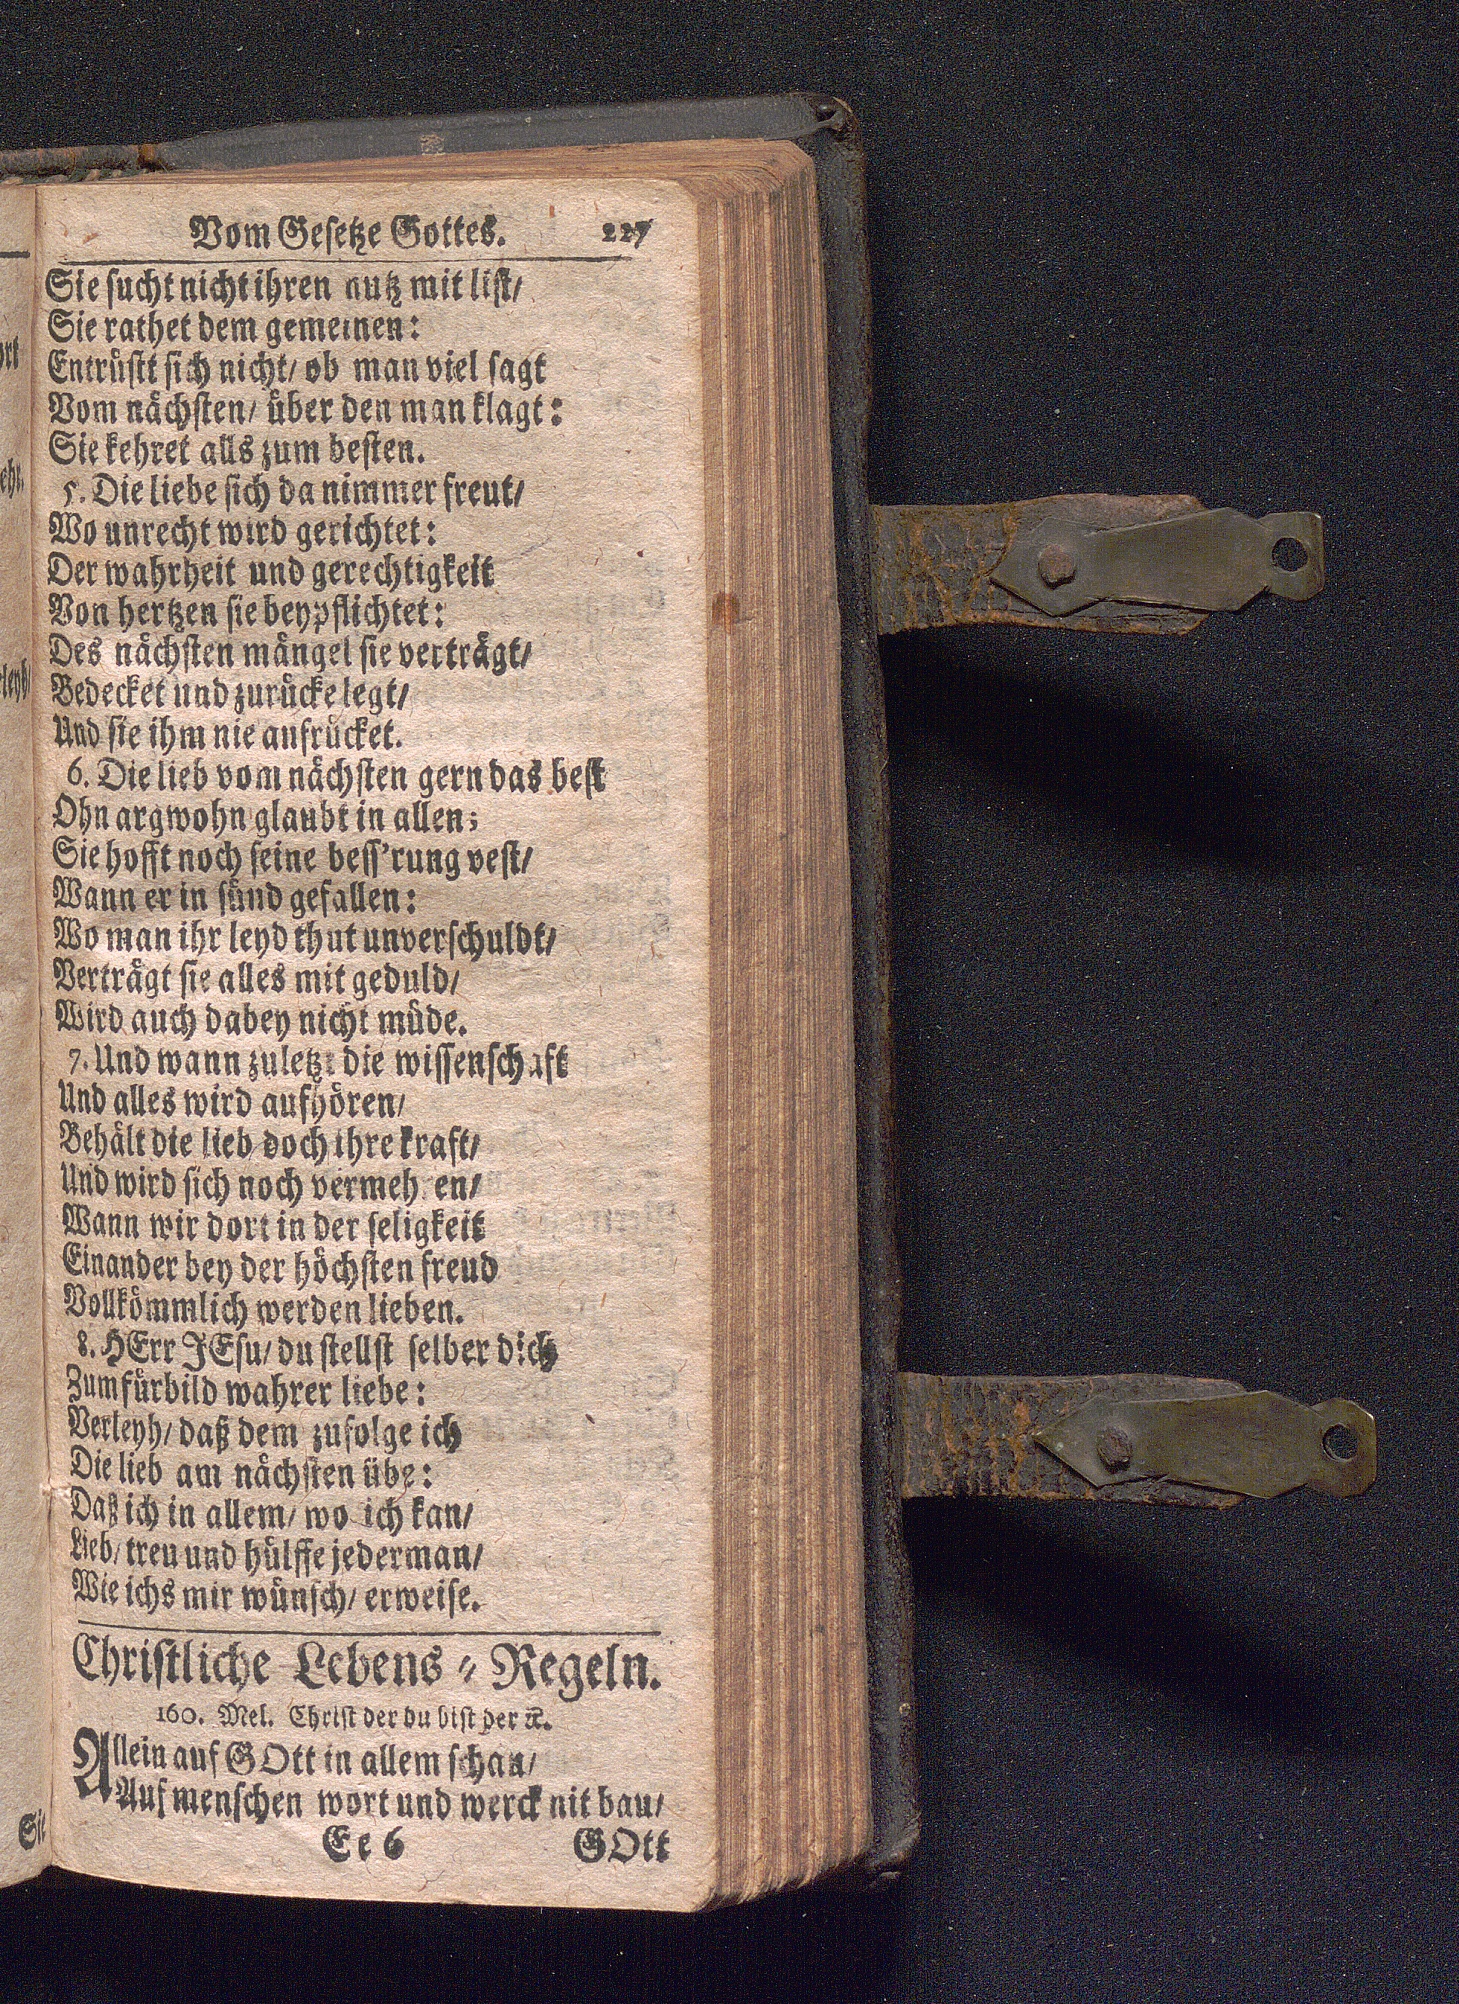 Vom Gesetze Gottes. 227
Sie sucht nicht ihren nutz mit list/
Sie rathet dem gemeinen:
Entrüstt sich nicht/ ob man viel sagt
Vom nächsten/ über den man klagt:
Sie kehret alls zum besten.
5. Die liebe sich da nimmer freut/
Wo unrecht wird gerichtet:
Der wahrheit und gerechtigkeit
Von hertzen sie beypflichtet:
Des nächsten mängel sie verträgt/
Bedecket und zurücke legt/
Und sie ihm nie aufrücket.
6. Die lieb vom nächsten gern das best
Ohn argwohn glaubt in allen;
Sie hofft noch seine bess'rung vest/
Wann er in sünd gefallen:
Wo man ihr leyd thut unverschuldt/
Verträgt sie alles mit geduld/
Wird auch dabey nicht müde.
7. Und wann zuletzt die wissenschaft
Und alles wird aufhören/
Behält die lieb doch ihre kraft/
Und wird sich noch vermehren/
Wann wir dort in der seligkeit
Einander bey der höchsten freud
Vollkömmlich werden lieben.
8. HErr JEsu/ du stellst selber dich
Zum fürbild wahrer liebe:
Verleyh/ daß dem zufolge ich
Die lieb am nächsten übe:
Daß ich in allem/ wo ich kan/
Lieb/ treu und hülffe jederman/
Wie ichs mir wünsch/ erweise.
Christliche Lebens⸗Regeln.
160. Mel. Christ der du bist der ꝛc.
Allein auf GOtt in allem schau/
Auf menschen wort und werck nit bau/
Ee 6 GOtt